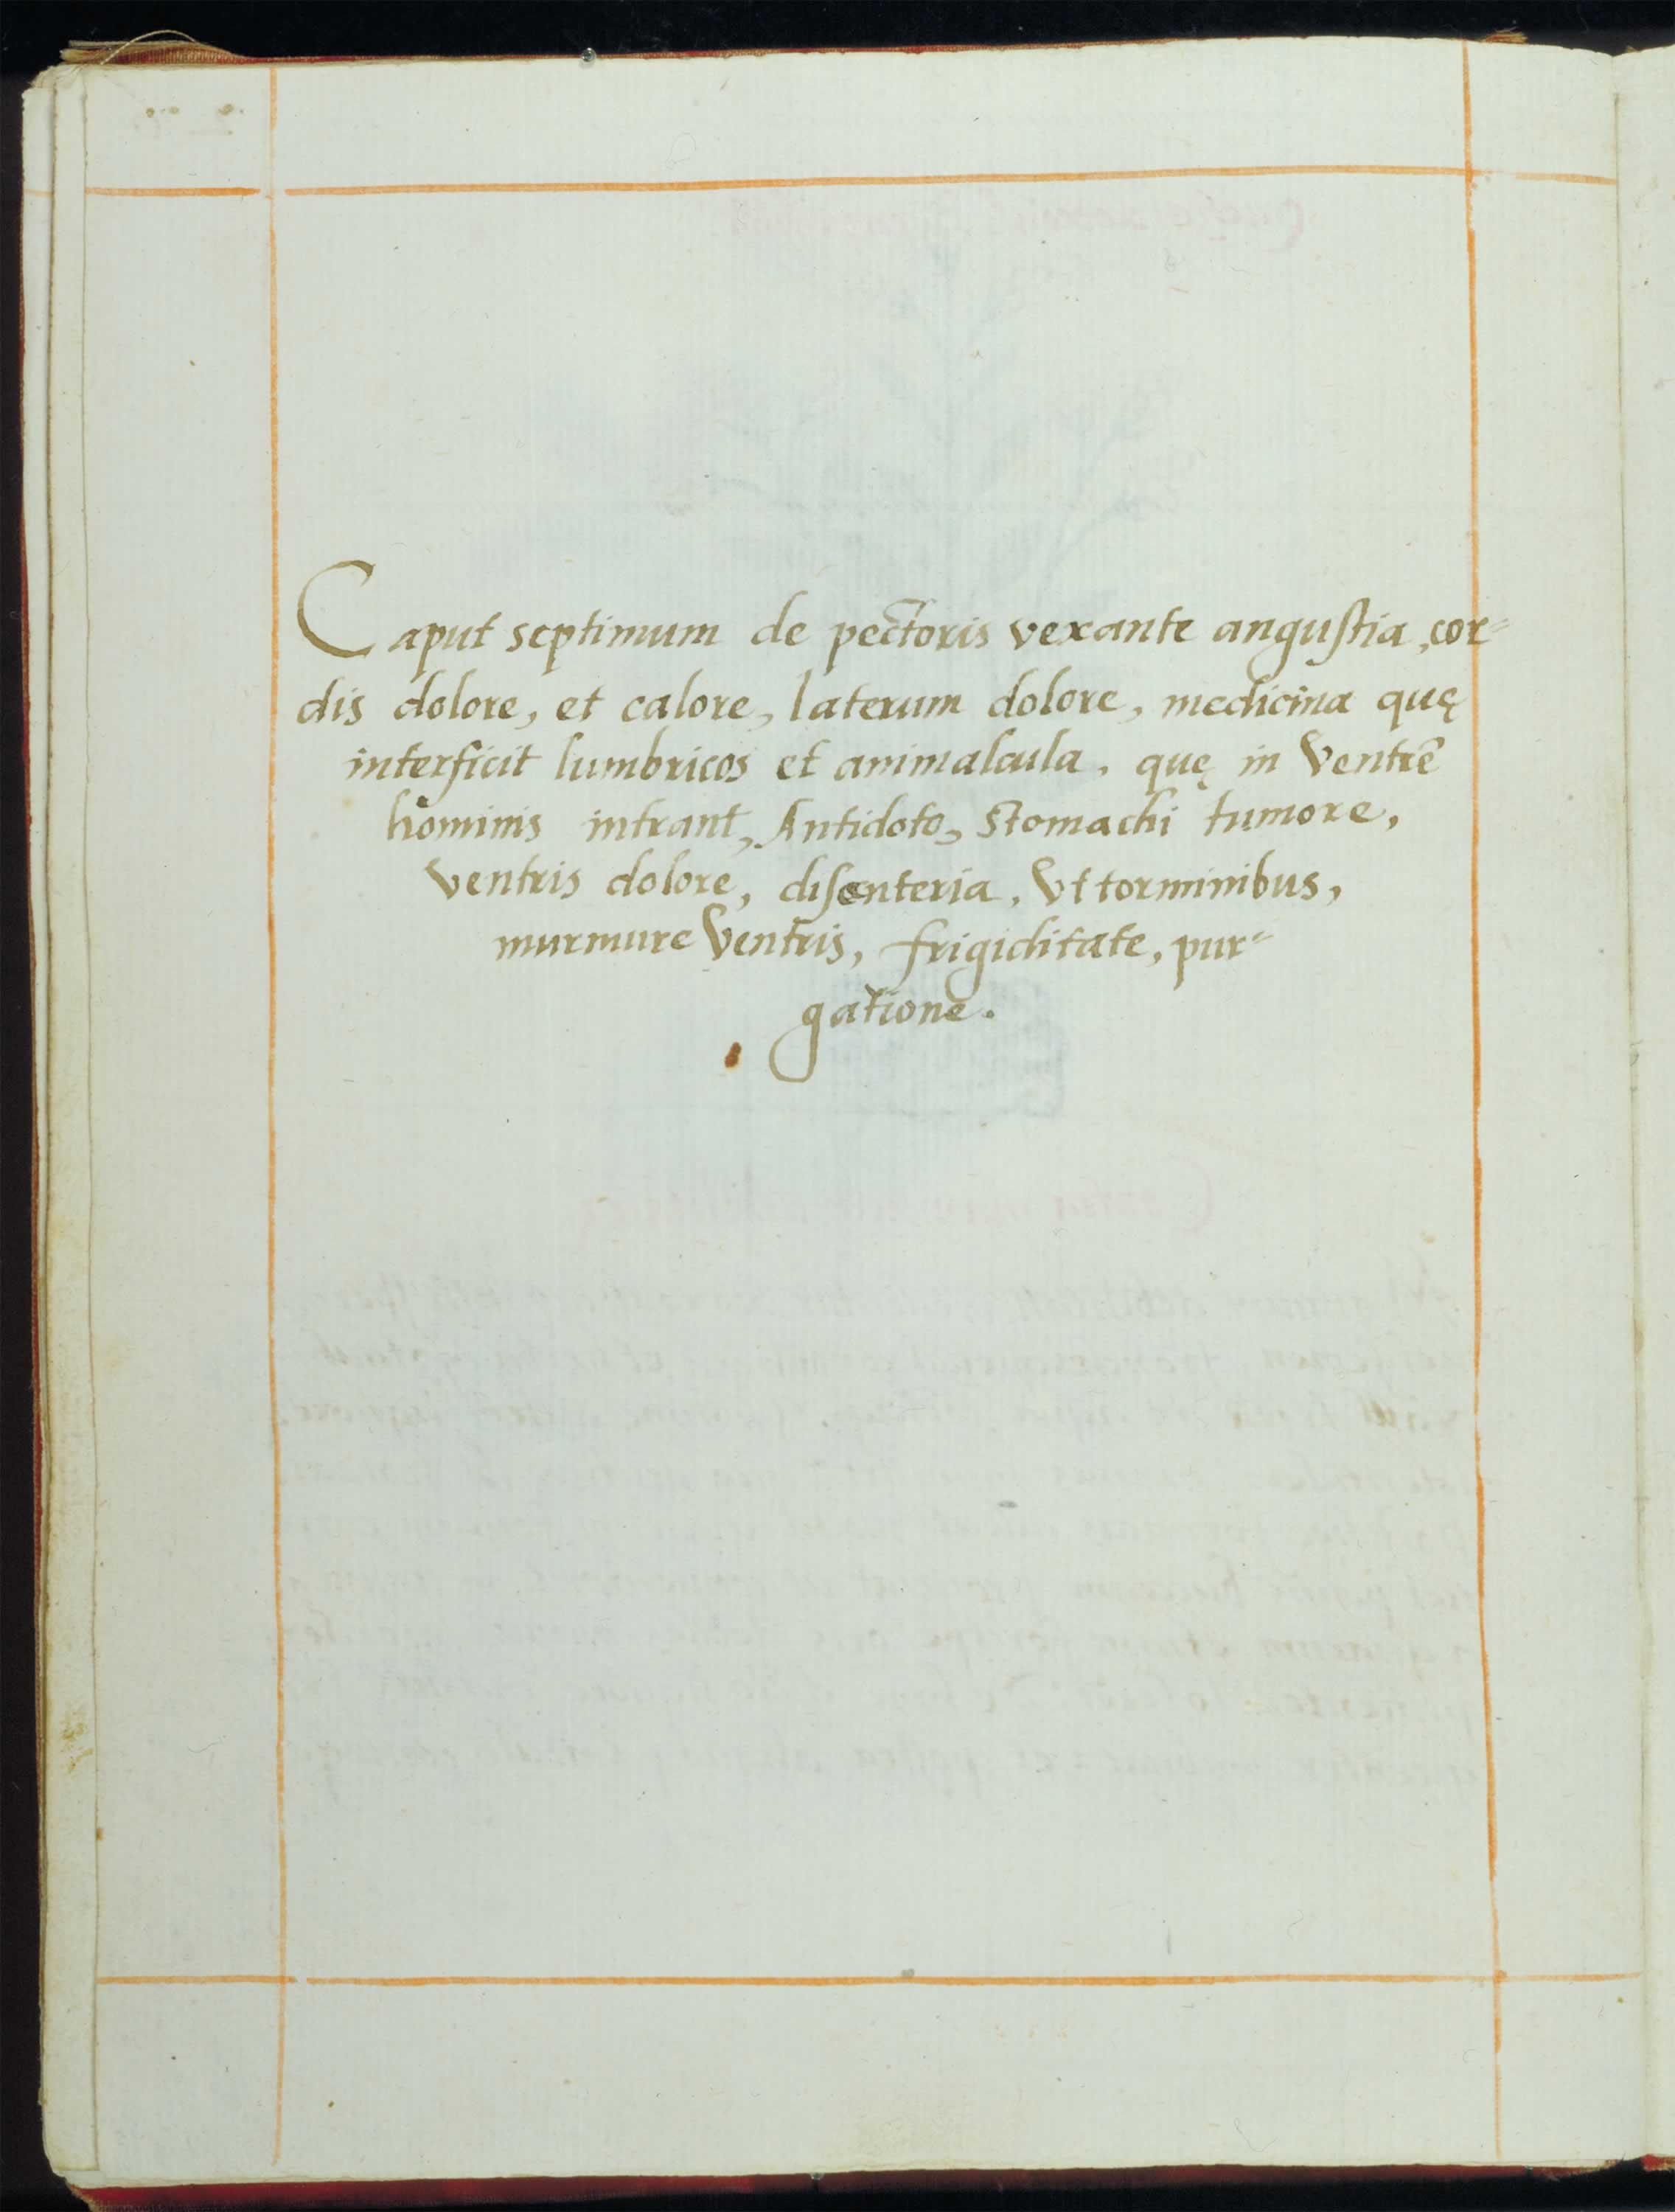 Caput septimum de pectoris vexante anguſtia, cor=
dis dolore, et calore, laterum dolore, medicina quę
interficit lumbricos et animalcula, quę in Ventrē
hominis intrant, Antidoto, Stomachi tumore,
ventris dolore, diſenteria, Vt torminibus,
murmure Ventris, frigiditate, pur=
gatione.